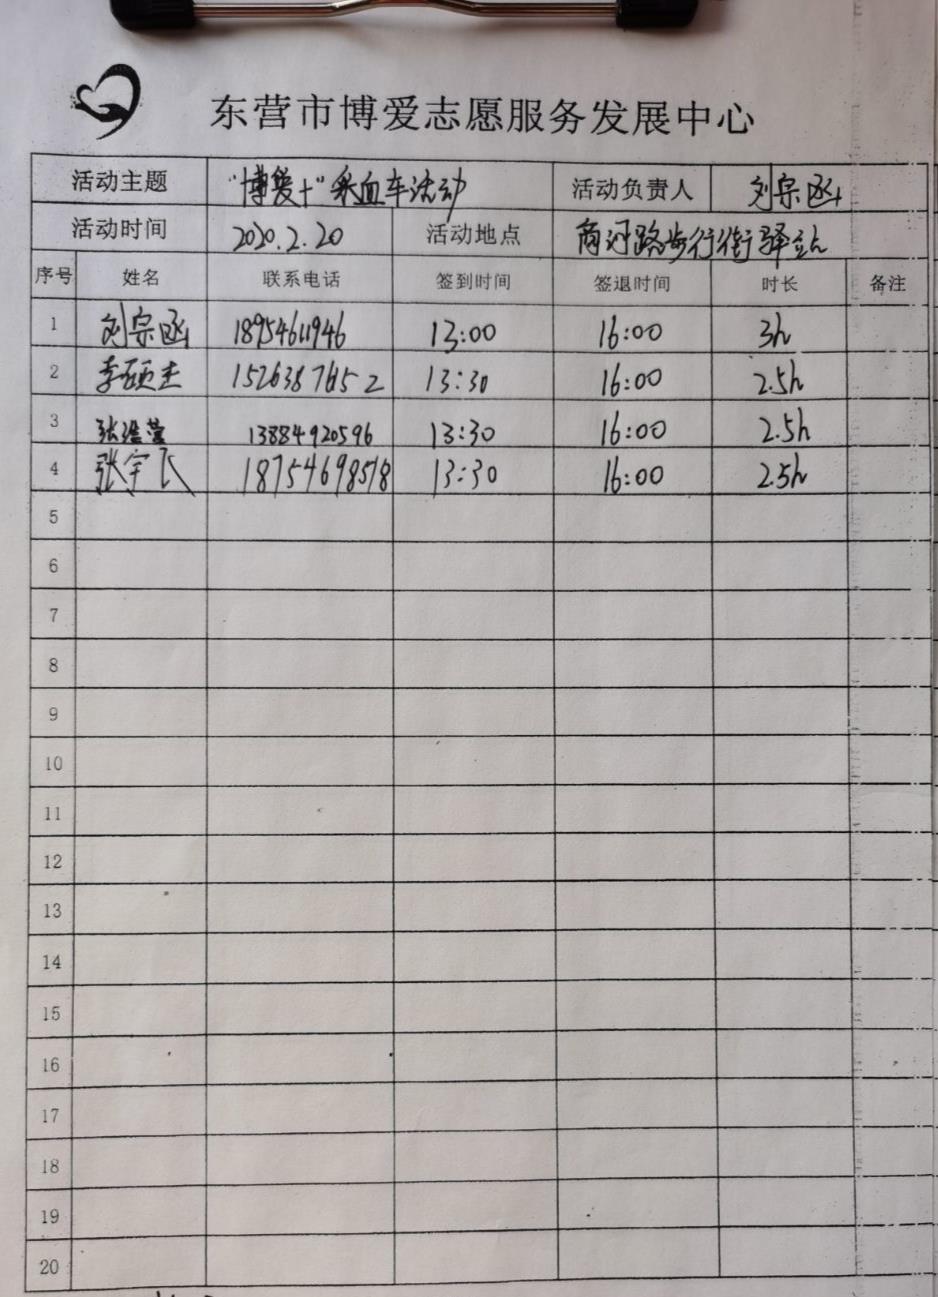 东营市博爱志愿服务发展中心
活动主题 “博爱+”采血车活动 活动负责人 刘宗函
活动时间 2020.2.20 活动地点 商河路步行街驿站
序号 姓名 联系电话 签到时间 签退时间 时长 备注
1 刘宗函 18954611946 13:00 16:00 3h
2 李硕杰 15263876152 13:30 16:00 2.5h
3 13884920596 13:30 16:00 2.5h
4 张宇飞 18754698518 13:30 16:00 2.5h
5
6
7
8
9
10
11
12
13
14
15
16
17
18
19
20